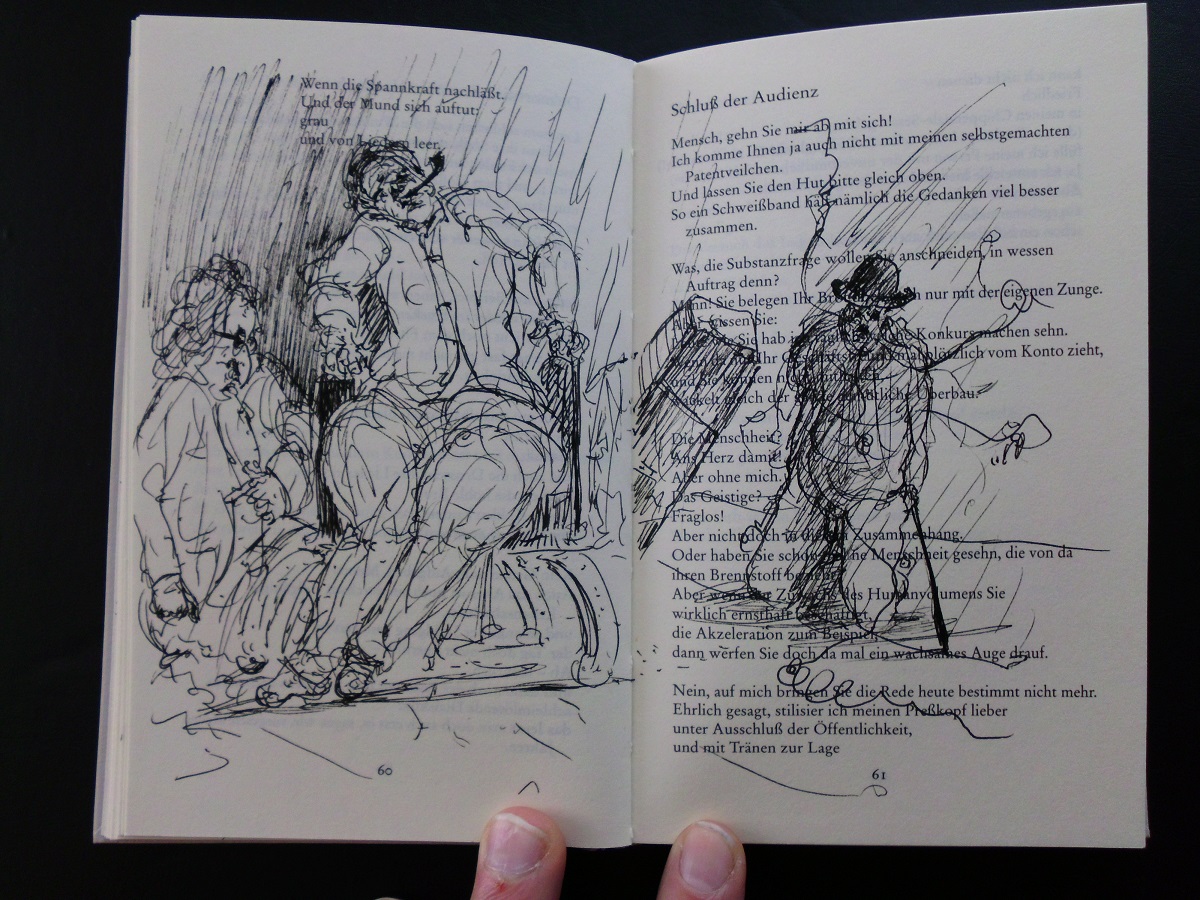 Wenn die Spannkraft nachläßt.
Und der Mund sich auftut:
grau
und von leer.
60
Schluß der Audienz
Mensch, gehn Sie mir ab mit sich!
Ich komme Ihnen ja auch nicht mit meinen selbstgemachten
Patentveilchen.
Und lassen Sie den Hut bitte gleich oben.
So ein Schweißband hält nämlich die Gedanken viel besser
zusammen.
Was, die Substanzfrage wollen Sie anschneiden, in wessen
Auftrag denn?
Mann! Sie belegen Ihr nur mit der eigenen Zunge.
wissen Sie:
Sie hab Konkurs machen sehn.
Ihr mal plötzlich vom Konto zieht,
und Sie können
gleich der Überbau.
Die Menschheit?
Ans Herz damit!
Aber ohne mich.
Das Geistige?
Fraglos!
Aber nicht doch in Zusammenhang.
Oder haben Sie schon eine Menschheit gesehn, die von da
ihren Brennstoff bezieht?
Aber wenn der des Humanvolumens Sie
wirklich ernsthaft beschäftigt,
die Akzeleration zum Beispiel,
dann werfen Sie doch da mal ein wachsames Auge drauf.
Nein, auf mich bringen Sie die Rede heute bestimmt nicht mehr.
Ehrlich gesagt, stilisier ich meinen Preßkopf lieber
unter Ausschluß der Öffentlichkeit,
und mit Tränen zur Lage
61